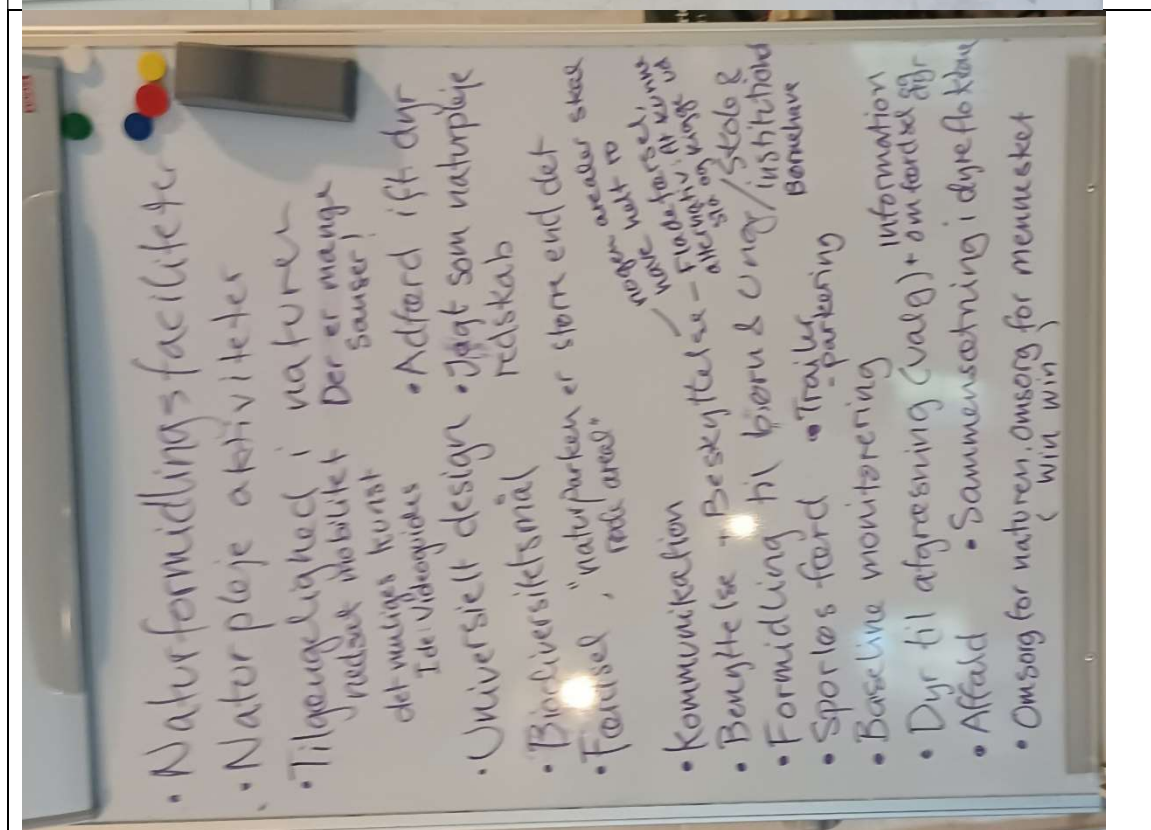 • Naturformidlingsfaciliteter
• Naturpleje aktiviteter
• Tilgængelighed i naturen
nedsat mobilitet Der er mange
sanser!
det muliges kunst
Ide: Videoguides • Adfærd ift. dyr
• Universielt design • Jagt som naturpleje
redskab
• Biodiversitetsmål
• Færdsel, "naturparken er større end det
røde areal"
nogen arealer skal
have helt ro
• Kommunikation
• Benyttelse + Beskyttelse
• Formidling til børn & unge/skole &
institutioner
Børnehave
• Sporløs færd • Trailer
- parkering
• Baseline monitorering
• Dyr til afgræsning (valg) + information
om færdsel og
dyr
• Affald • Sammensætning i dyreflokkene
• Omsorg for naturen, omsorg for mennesket
(win win)